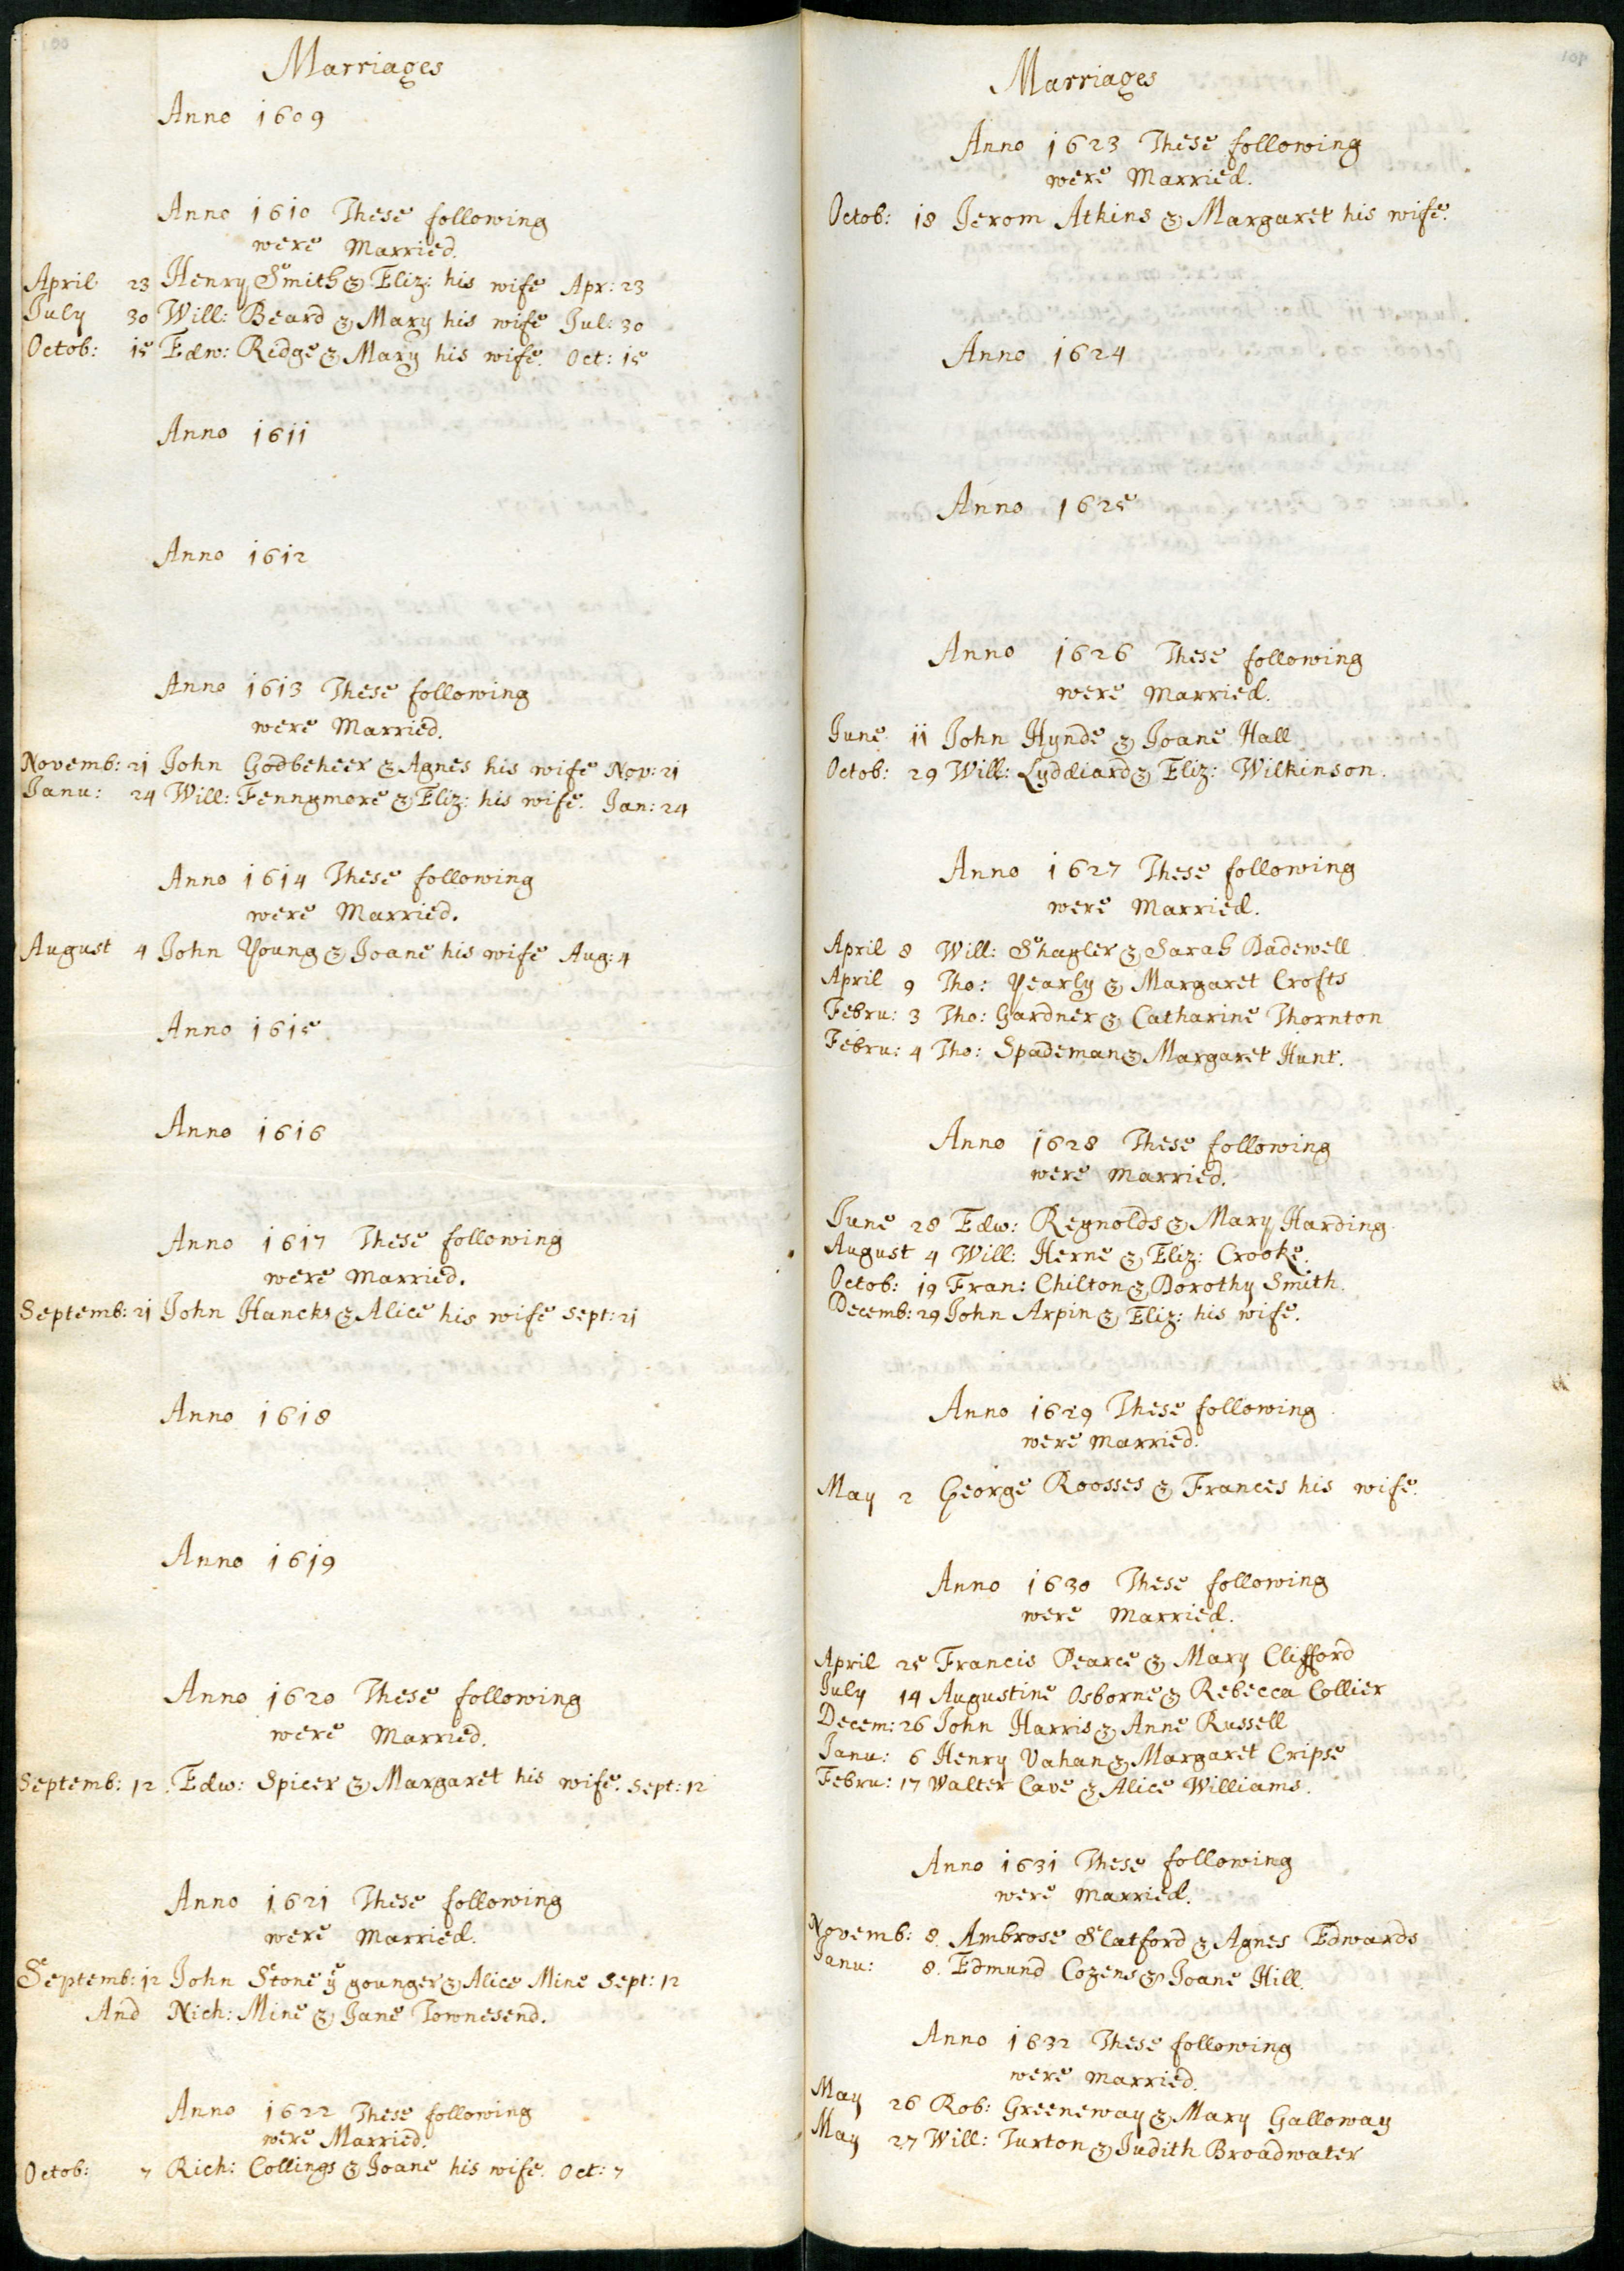 Marriages
Anno 1609
Anno 1610 These following
were Married.
April 23 Henry Smith & Eliz: his wife Apr: 23
July 30 Will: Beard & Mary his wife Jul: 30
Octob: 15 Edw: Ridge & Mary his wife. Oct: 15
Anno 1611
Anno 1612
Anno 1613 These following
were Married.
Novemb: 21 John Godbeheer & Agnes his wife Nov: 21
Janu: 24 Will: Fennymore & Eliz: his wife. Jan: 24
Anno 1614 These following
were Married.
August 4 John Young & Joane his wife Aug: 4
Anno 1615
Anno 1616
Anno 1617 These following
were Married.
Septemb: 21 John Hancks & Alice his wife Sept: 21
Anno 1618
Anno 1619
Anno 1620 These following
were Married.
Septemb: 12 Edw: Spicer & Margaret his wife. Sept: 12
Anno 1621 These following
were Married.
Septemb: 12 John Stone yᵉ younger & Alice Mine Sept: 12
And Nich: Mine & Jane Townesend.
Anno 1622 These following
were Married.
Octob: 7 Rich: Collings & Joane his wife. Oct: 7
101
Marriages
Anno 1623 These following
were Married.
Octob: 18 Jerom Atkins & Margaret his wife.
Anno 1624
Anno 1625
Anno 1626 These following
were Married.
June 11 John Hynde & Joane Hall
Octob: 29 Will: Lyddiard & Eliz: Wilkinson.
Anno 1627 These following
were Married.
April 8 Will: Shagler & Sarah Dadewell
April 9 Tho: Yearly & Margaret Crofts
Febru: 3 Tho: Gardner & Catharine Thornton
Febru: 4 Tho: Spademan & Margaret Hunt.
Anno 1628 These following
were Married.
June 28 Edw: Reynolds & Mary Harding.
August 4 Will: Herne & Eliz: Crooke.
Octob: 19 Fran: Chilton & Dorothy Smith.
Decemb: 29 John Arpin & Eliz: his wife.
Anno 1629 These following
were Married.
May 2 George Roosses & Frances his wife.
Anno 1630 These following
were Married.
April 25 Francis Pearce & Mary Clifford
July 14 Augustine Osborne & Rebecca Collier
Decem: 26 John Harris & Anne Russell
Janu: 6 Henry Vahan & Margaret Cripse
Febru: 17 Walter Cave & Alice Williams.
Anno 1631 These following
were Married.
Novemb: 8. Ambrose Slatford & Agnes Edwards
Janu: 8. Edmund Cozens & Joane Hill.
Anno 1632 These following
were Married.
May 26 Rob: Greeneway & Mary Galloway
May 27 Will: Turton & Judith Broadwater